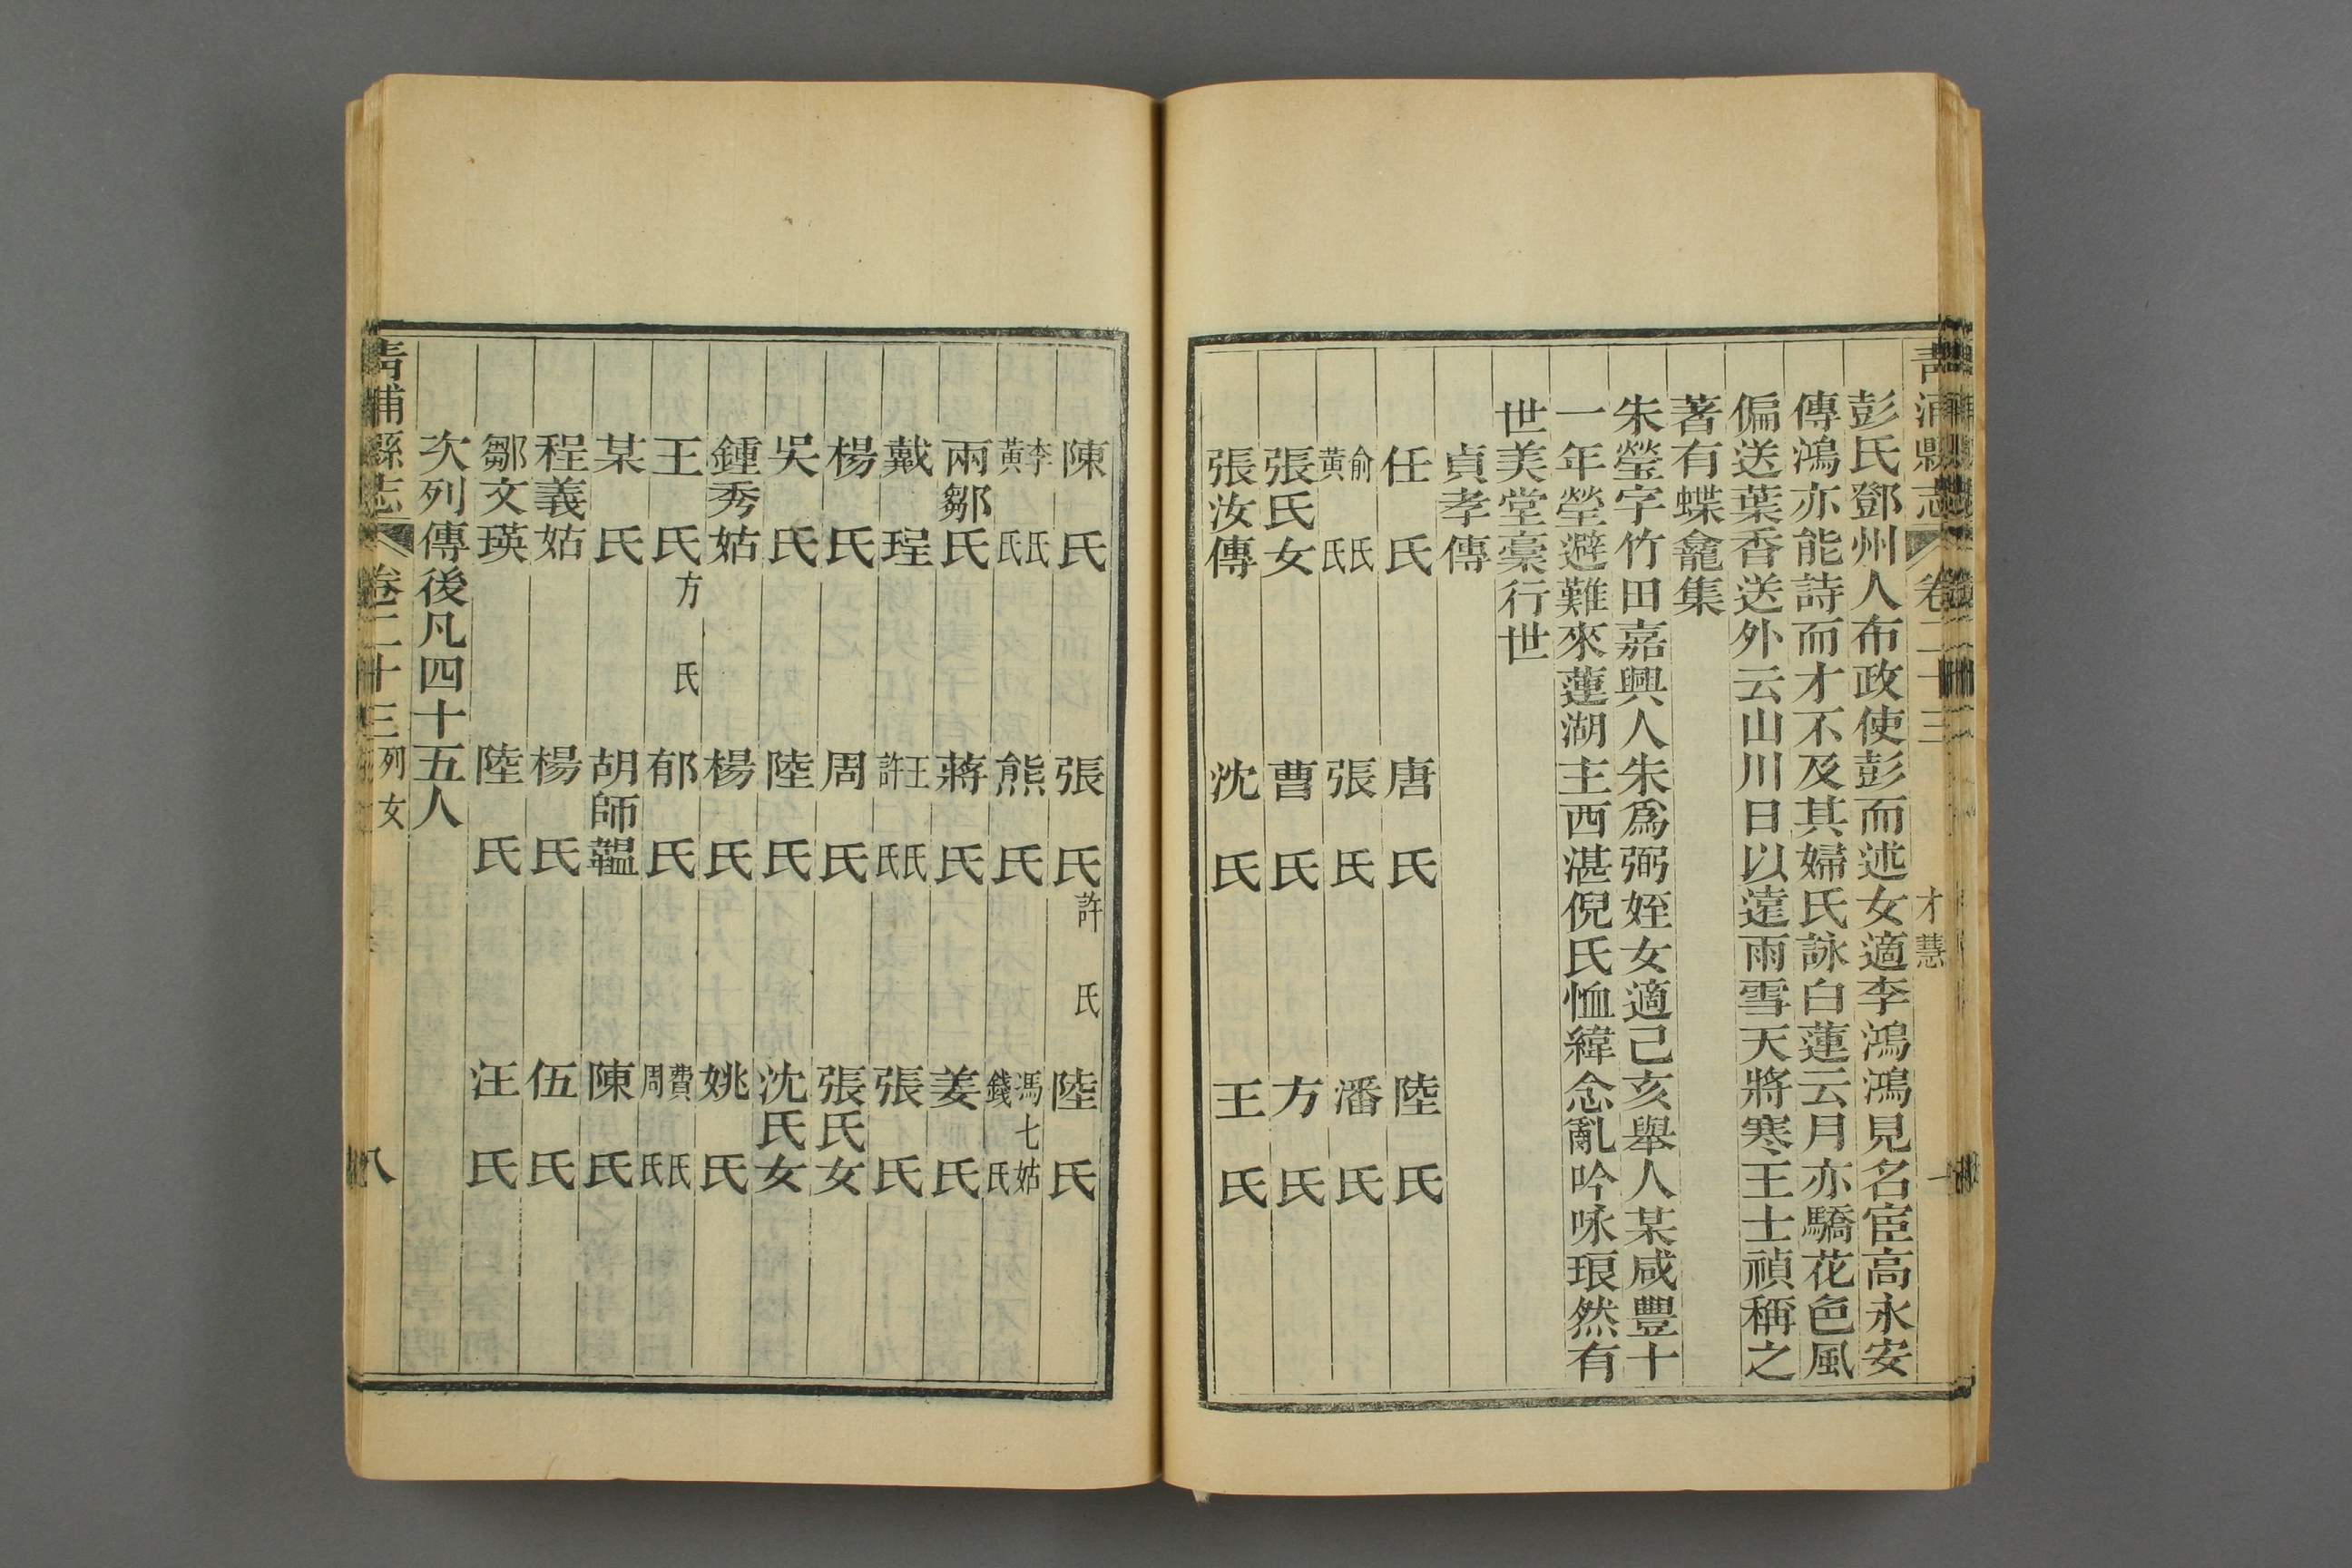 青浦縣志 卷二十三 才慧
彭氏鄧州人布政使彭而述女適李鴻鴻見名宦高永安
傳鴻亦能詩而才不及其婦氏詠白蓮云月亦驕花色風
偏送葉香送外云山川日以遠雨雪天將寒王士禎稱之
著有蝶龕集
朱瑩字竹田嘉興人朱為弼姪女適己亥舉人某咸豐十
一年瑩避難來蓮湖主西湛倪氏恤緯念亂吟咏琅然有
世美堂稾行世
貞孝傳
任氏 唐氏 陸氏
俞氏 黃氏 張氏 潘氏
張氏女 曹氏 方氏
張汝傳 沈氏 王氏
陳氏 張氏 許氏 陸氏
李氏 黃氏 熊氏 馮七姑 錢氏
兩鄒氏 蔣氏 姜氏
戴珵 王氏 許氏 張氏
楊氏 周氏 張氏女
吳氏 陸氏 沈氏女
鍾秀姑 楊氏 姚氏
王氏 方氏 郁氏 費氏 周氏
某氏 胡師韞 陳氏
程義姑 楊氏 伍氏
鄒文瑛 陸氏 汪氏
次列傳後凡四十五人
青浦縣志 卷二十三 列女 八